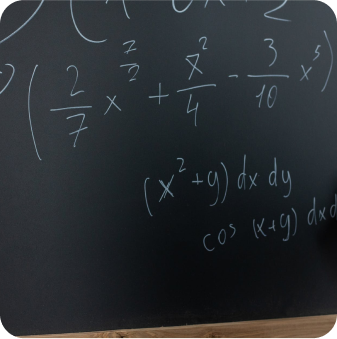 ( 2/7 x^(7/2) + x^2/4 - 3/10 x^5 )
(x^2+y) dx dy
cos (x+y) dx d